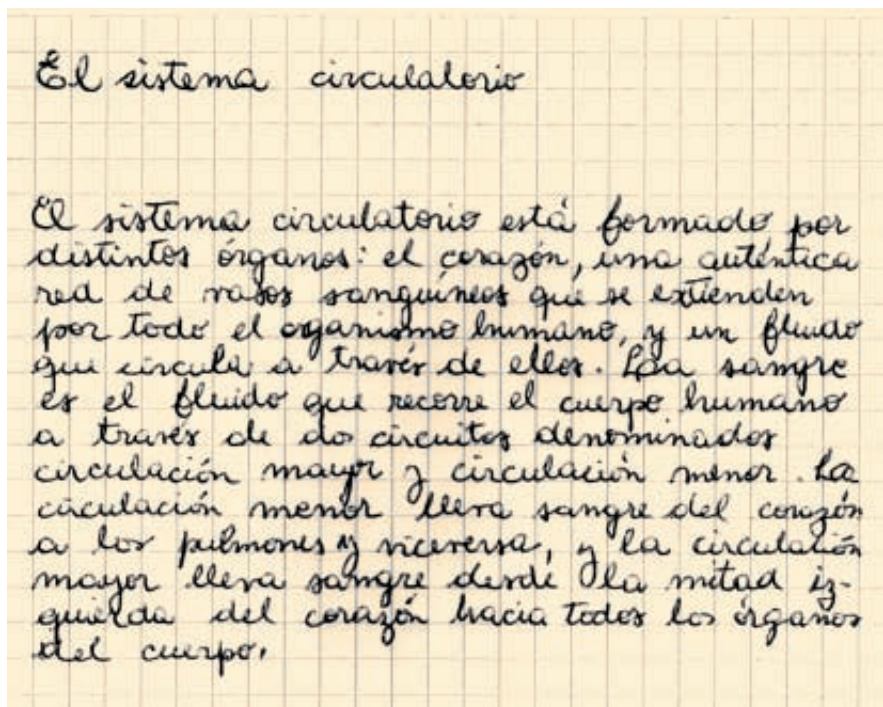 El sistema circulatorio
El sistema circulatorio está formado por
distintos órganos: el corazón, una auténtica
red de vasos sanguíneos que se extienden
por todo el organismo humano, y un fluido
que circula a través de ellos. La sangre
es el fluido que recorre el cuerpo humano
a través de dos circuitos denominados
circulación mayor y circulación menor. La
circulación menor lleva sangre del corazón
a los pulmones y viceversa, y la circulación
mayor lleva sangre desde la mitad iz-
quierda del corazón hacia todos los órganos
del cuerpo.